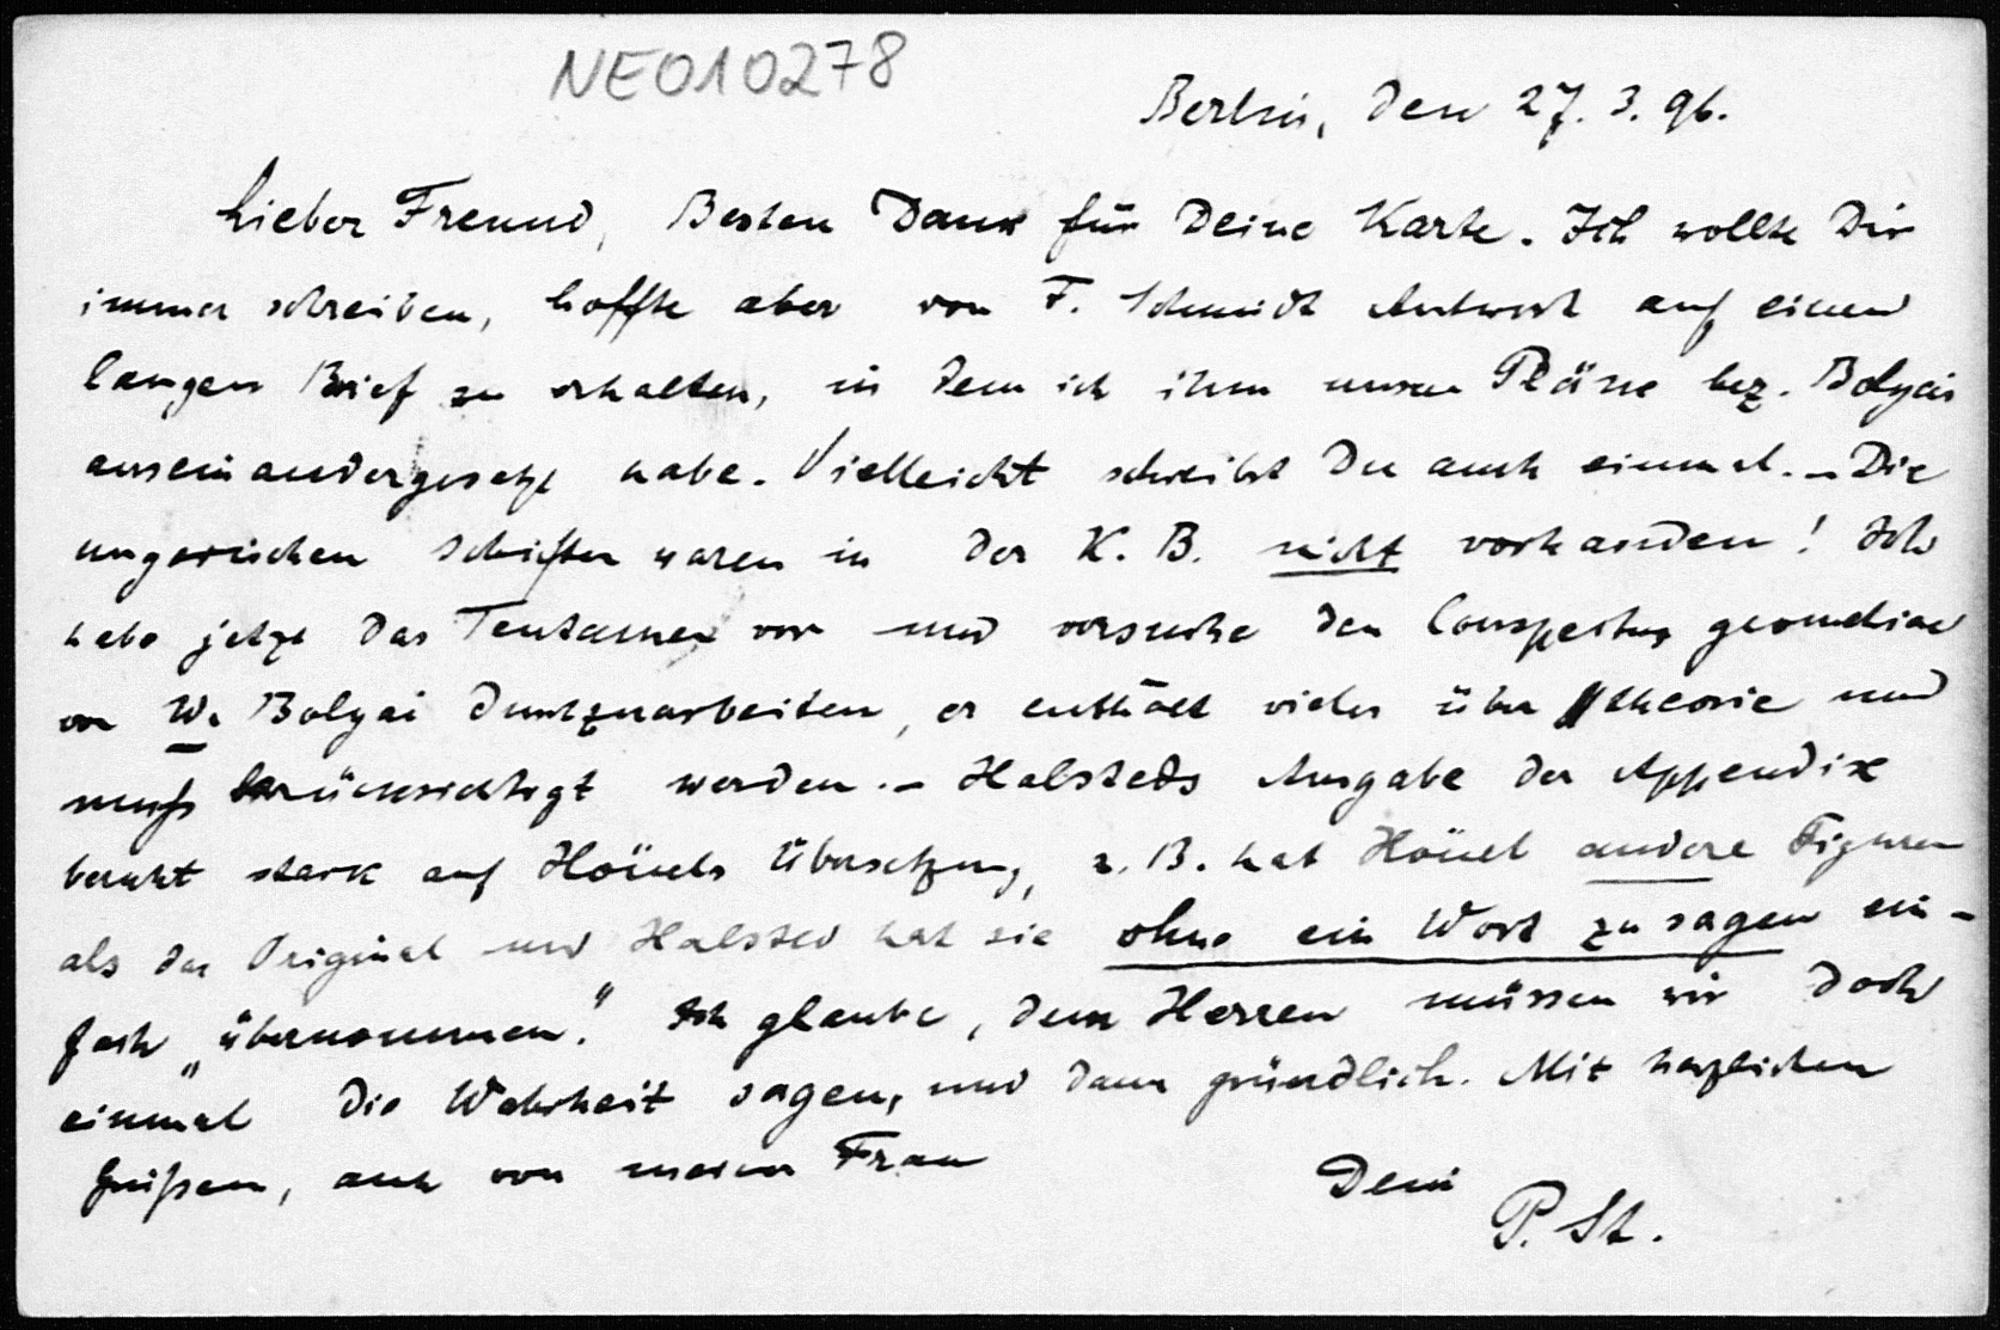 NEO10278
Berlin, den 27.3.96.
Lieber Freund, Besten Dank für Deine Karte. Ich wollte Dir
immer schreiben, hoffte aber von F. Schmidt Antwort auf einen
langen Brief zu erhalten, in dem ich ihm unsere Pläne bez. Bolyais
auseinandergesetzt habe. Vielleicht schreibst Du auch einmal. – Die
ungarischen Schriften waren in der K. B. nicht vorhanden! Ich
habe jetzt das Tentamen vor und versuche den Conspectus geometriae
von W. Bolyai durchzuarbeiten, er enthält vieles über \\theorie und
muss berücksichtigt werden. – Halsteds Ausgabe der Appendix
beruht stark auf Hoüels Übersetzung, z. B. hat Hoüel andere Figuren
als das Original und Halsted hat sie ohne ein Wort zu sagen ein-
fach „übernommen." Ich glaube, dem Herren müssen wir doch
einmal die Wahrheit sagen, und dann gründlich. Mit herzlichen
Grüßen, auch von meiner Frau
Dein
P. St.